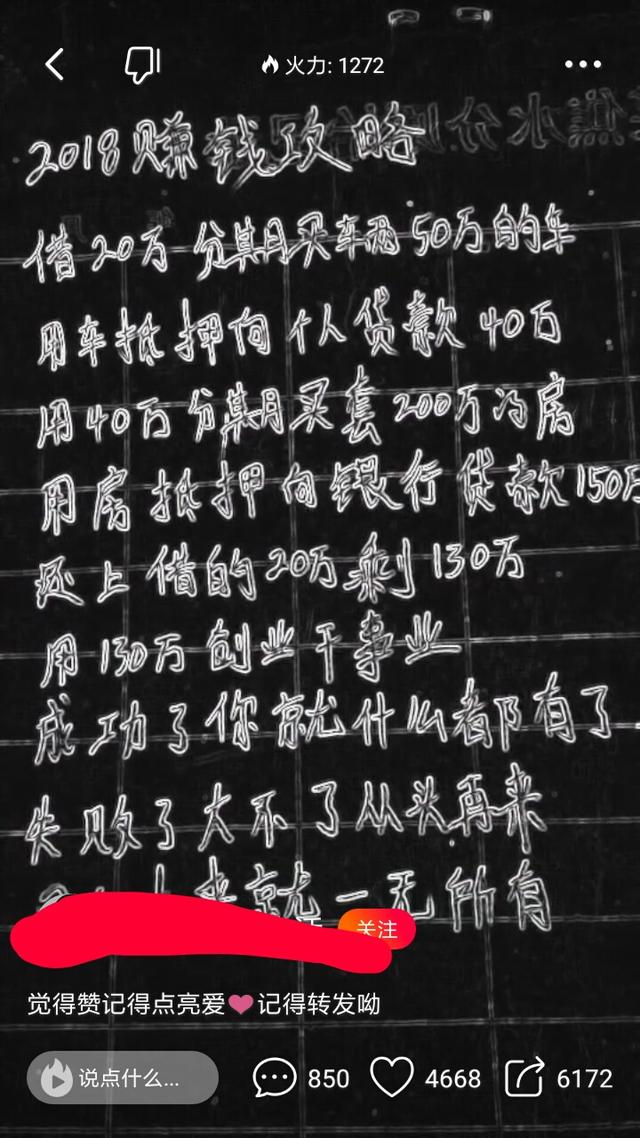 火力: 1272
2018赚钱攻略
借20万分期买车辆50万的车
用车抵押向个人贷款40万
用40万分期买套200万的房
用房抵押向银行贷款150万
还上借的20万剩130万
用130万创业干事业
成功了你就什么都有了
失败了大不了从头再来
来就一无所有
关注
觉得赞记得点亮爱❤记得转发呦
说点什么...
850
4668
6172